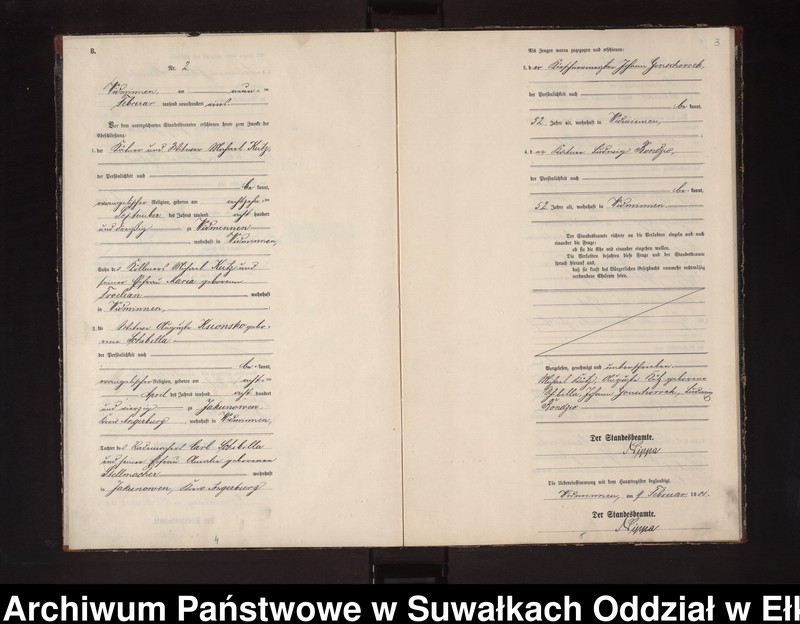 B.
Nr. 2
Widminnen, am neun-
Februar tausend neunhundert eins.
Vor dem unterzeichneten Standesbeamten erschienen heute zum Zwecke der
Eheschließung:
1. der Kätner und Witwer Michael Kutz,
der Persönlichkeit nach
be kannt,
evangelischer Religion, geboren am
September des Jahres tausend acht hundert
und dreißig zu Widminnen
wohnhaft in Widminnen,
Sohn des Michael Kutz und
seiner Ehefrau Maria geborenen
wohnhaft
in Widminnen,
2. die Witwe Auguste gebo-
rene Schibella
der Persönlichkeit nach
be kannt,
evangelischer Religion, geboren am acht-
April des Jahres tausend acht hundert
und vierzig zu Jakunowen
Kreis Angerburg, wohnhaft in Widminnen,
Tochter des Carl Schibella
und seiner Ehefrau Amalie geborenen
Stellmacher wohnhaft
in Jakunowen, Kreis Angerburg
4
3
Als Zeugen waren zugezogen und erschienen:
3. der Johann
der Persönlichkeit nach
be kannt,
52 Jahre alt, wohnhaft in Widminnen,
4. der Kätner Ludwig
der Persönlichkeit nach
be kannt,
52 Jahre alt, wohnhaft in Widminnen
Der Standesbeamte richtete an die Verlobten einzeln und nach
einander die Frage:
ob sie die Ehe mit einander eingehen wollen.
Die Verlobten bejahten diese Frage und der Standesbeamte
sprach hierauf aus,
daß sie kraft des Bürgerlichen Gesetzbuchs nunmehr rechtmäßig
verbundene Eheleute seien.
Vorgelesen, genehmigt und unterschrieben
Michael Kutz, Auguste Kutz geborene
Schibella, Johann Ludwig
Der Standesbeamte.
Lippa
Die Uebereinstimmung mit dem Hauptregister beglaubigt
Widminnen, am 9 Februar 1901.
Der Standesbeamte.
Lippa
Archiwum Państwowe w Suwałkach Oddział w Ełk